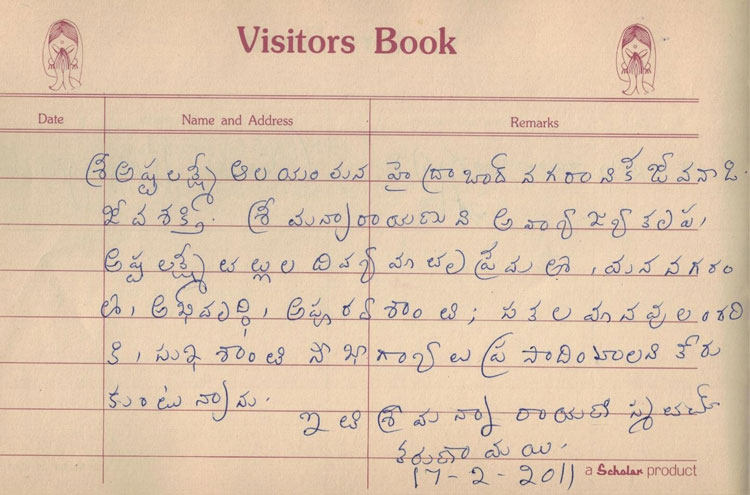 Visitors Book
Date Name and Address Remarks
శ్రీ అష్టలక్ష్మీ ఆలయం మన హైద్రాబాద్ నగరానికే జీవనాడి
జీవశక్తి. శ్రీమన్నారాయణుని
అష్టలక్ష్మీ దివ్య మన నగరం
అభివృద్ధి, శాంతి; సకల మానవులందరి
కి, సుఖశాంతి సౌభాగ్యాలు ప్రసాదించాలని కోరు
కుంటున్నాను.
ఇతి శ్రీమన్నారాయణ
కరుణామయి.
17-2-2011
a Scholar product